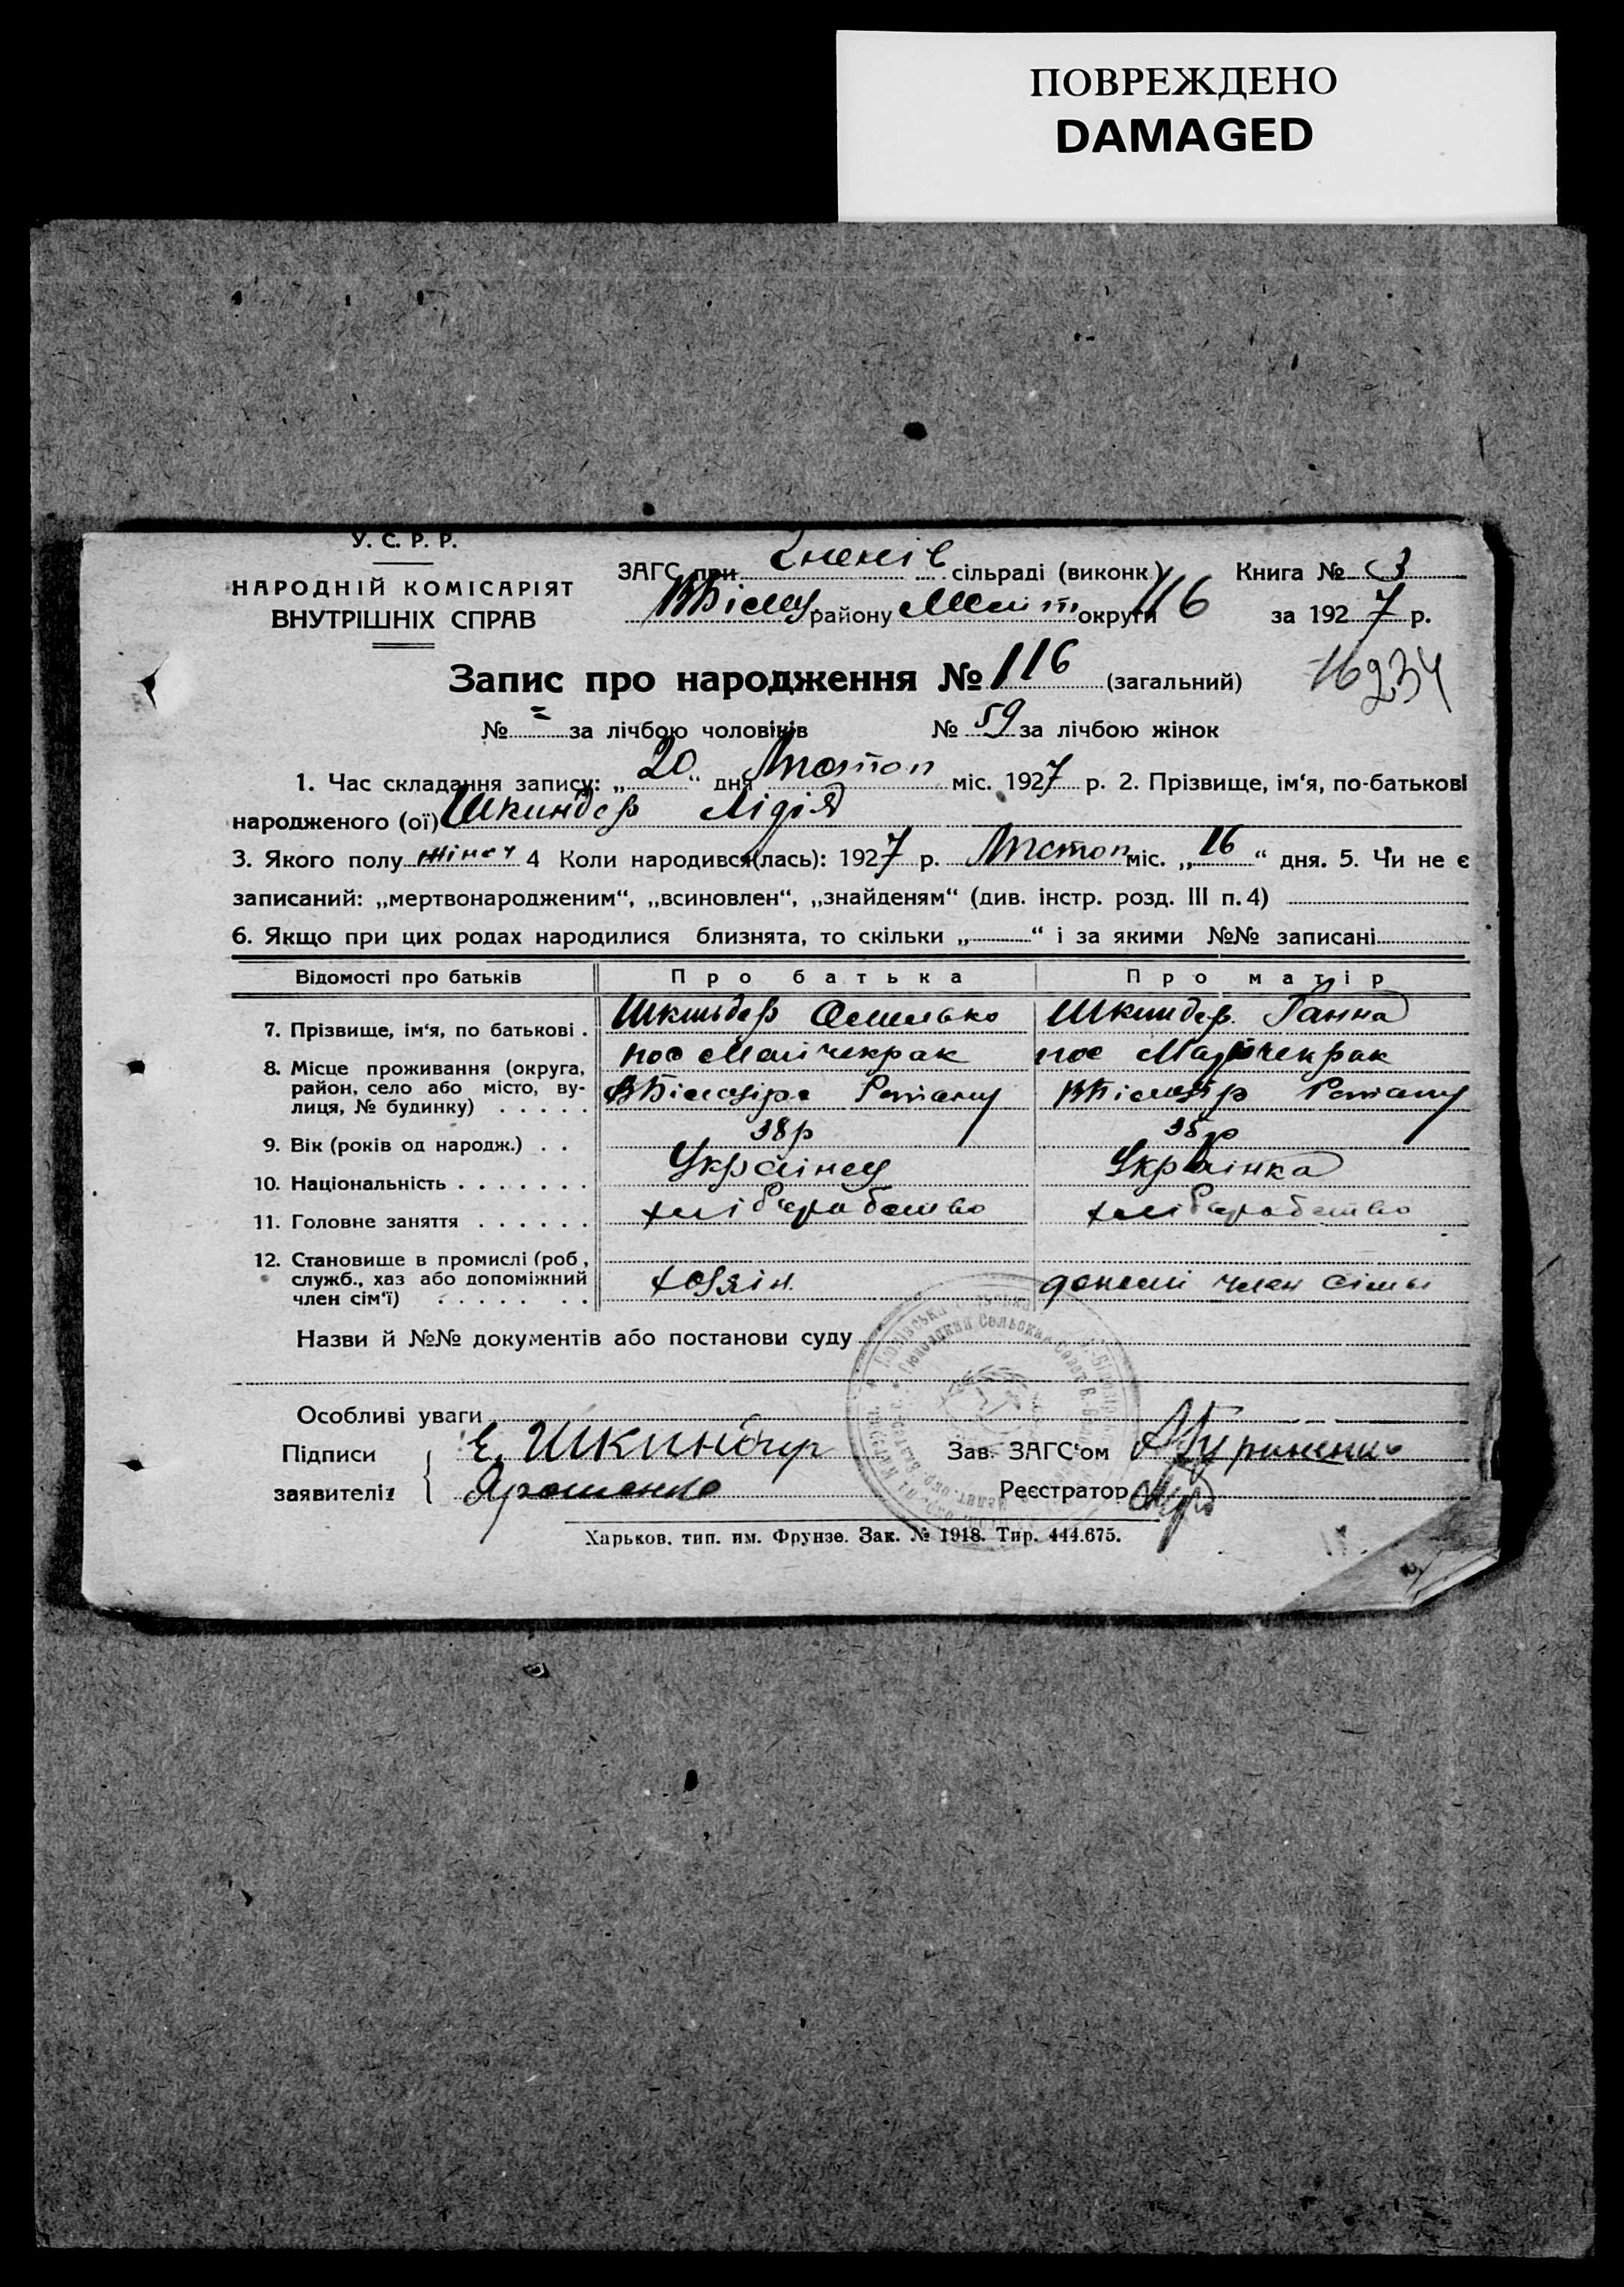 ПОВРЕЖДЕНО
DAMAGED
У. С. Р. Р.
НАРОДНІЙ КОМІСАРІЯТ
ВНУТРІШНІХ СПРАВ
ЗАГС при сільраді (виконк.) Книга № 3
району округи 116 за 1927 р.
Запис про народження № 116 (загальний) 16234
№ = за лічбою чоловіків № 59 за лічбою жінок
1. Час складання запису: „20“ дня Листоп міс. 1927 р. 2. Прізвище, ім‘я, по-батькові
народженого (ої) Шкиндер Лідія
3. Якого полу жіноч 4 Коли народився(лась): 1927 р. Листоп міс. „16“ дня. 5. Чи не є
записаний: „мертвонародженим“, „всиновлен“, „знайденям“ (див. інстр. розд. III п. 4)
6. Якщо при цих родах народилися близнята, то скільки „ “ і за якими №№ записані
Відомості про батьків Про батька Про матір
7. Прізвище, ім‘я, по батькові . Шкиндер Шкиндер Ганна
8. Місце проживання (округа,
район, село або місто, ву-
лиця, № будинку) . . . . .
9. Вік (років од народж.) . . 38р
10. Національність . . . . . . . Українец Українка
11. Головне заняття . . . . . . хліборобство хліборобство
12. Становище в промислі (роб,
служб., хаз або допоміжний
член сім‘ї) . . . . . . . хозяін член сімьі
Назви й №№ документів або постанови суду
Особливі уваги
Підписи Е. Шкиндер Зав. ЗАГС‘ом
заявителів Ярошенко Реєстратор
Харьков. тип. им. Фрунзе. Зак. № 1918. Тир. 444.675.